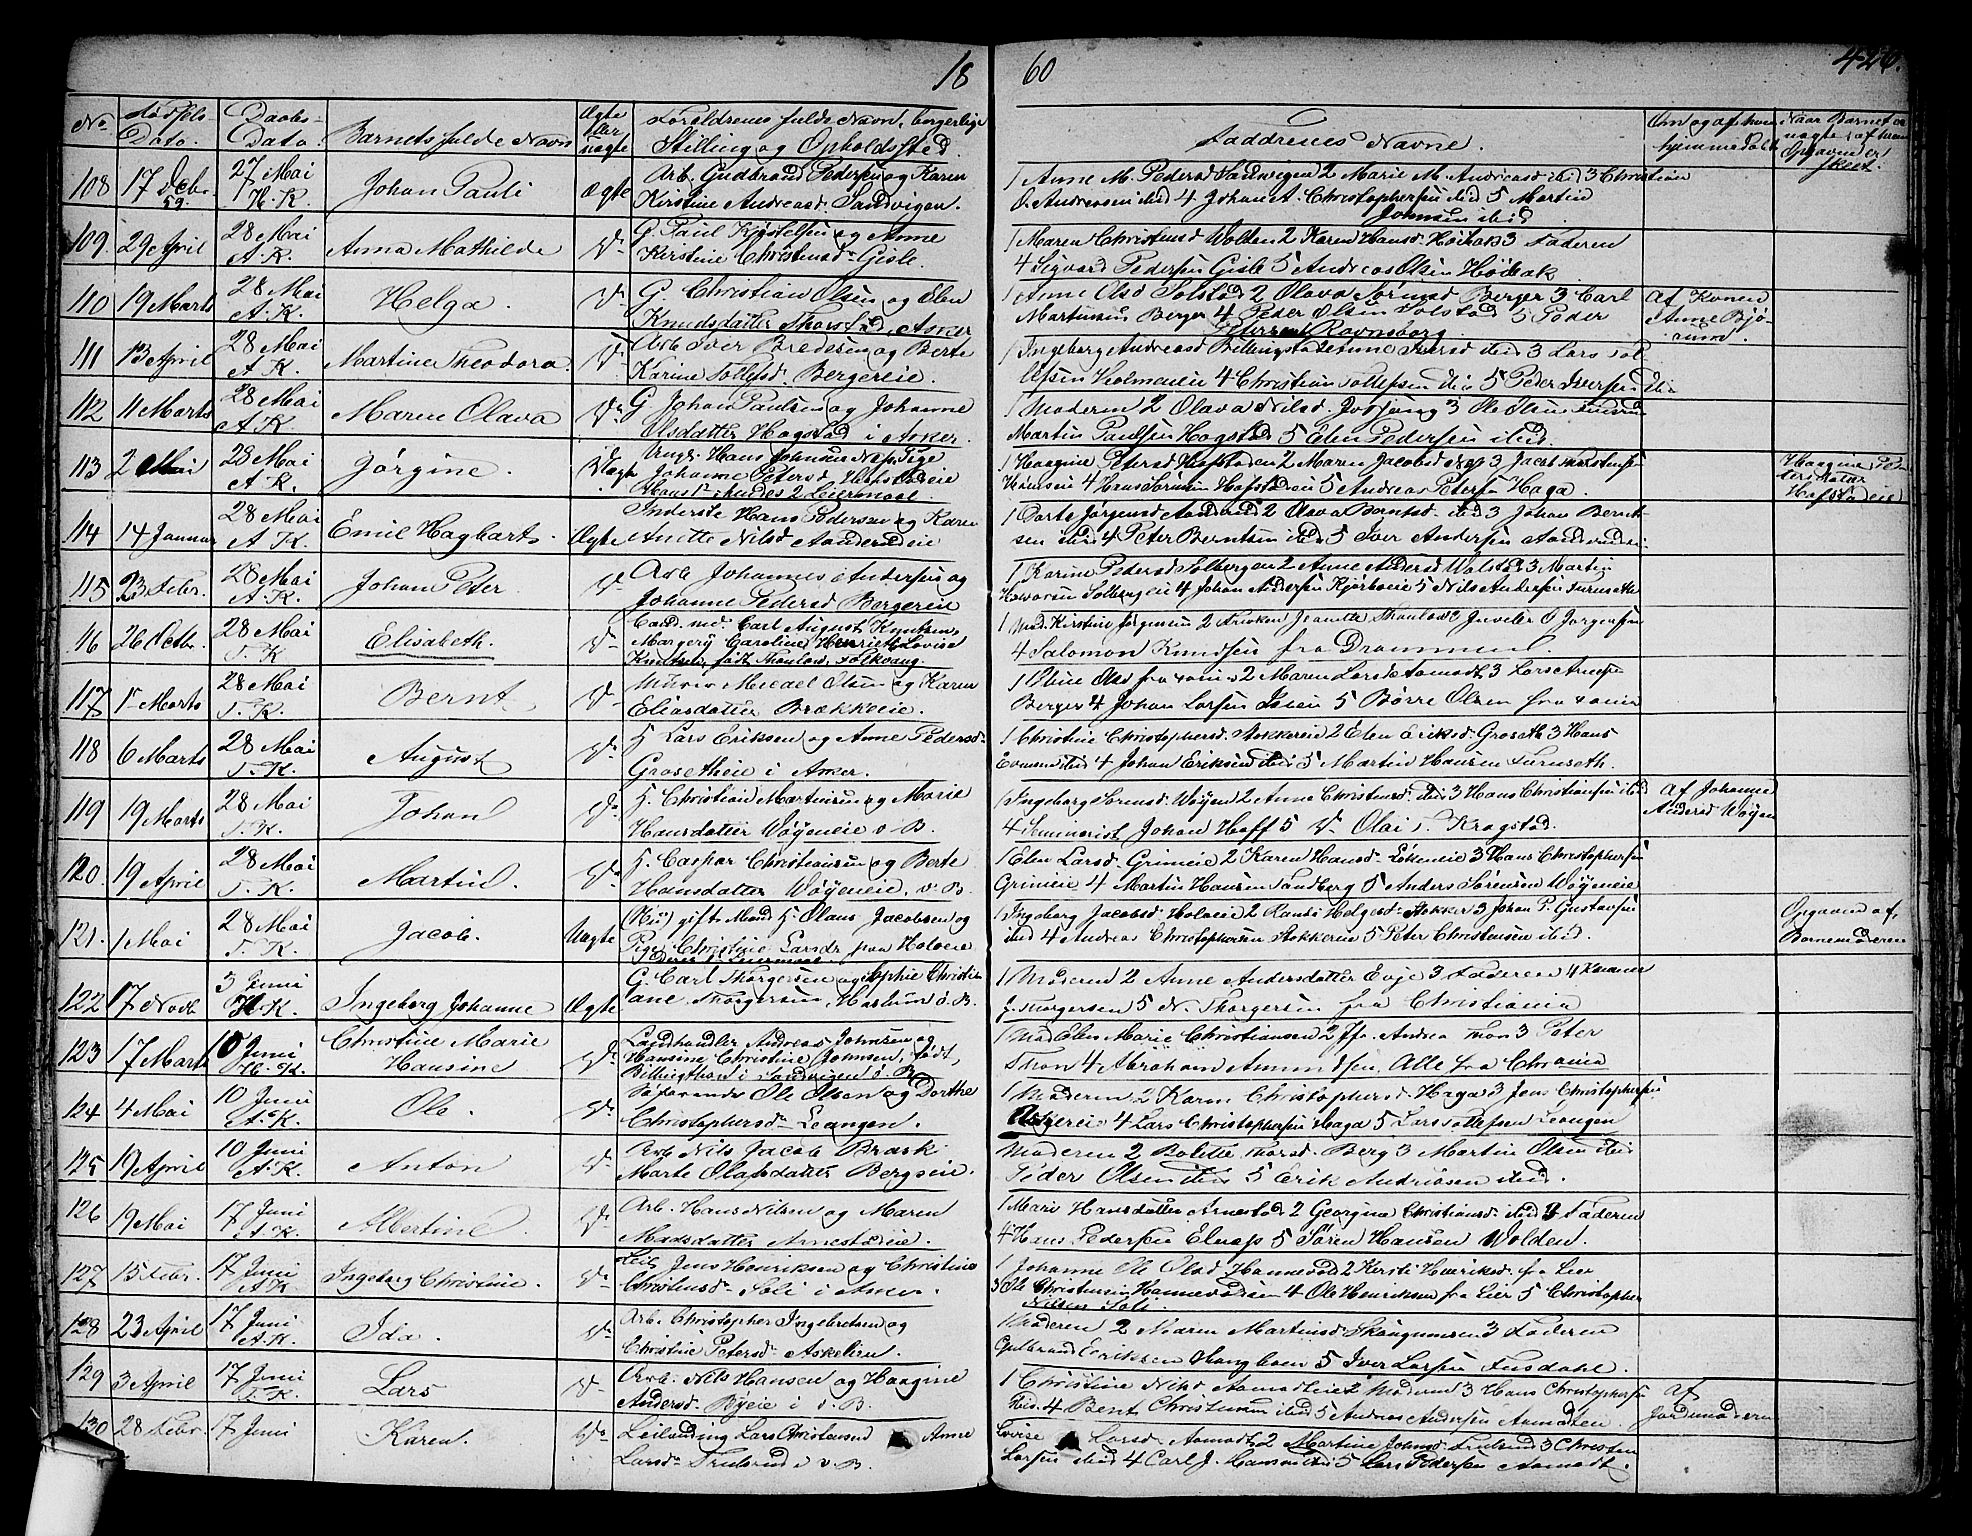 18 60 426.
No Fødsels- Dato. Daabs- Dato. Barnets fulde Navn Ægte eller uægte Forældrenes fulde Navn, borgerlige Stilling og Opholdssted. Faddrenes Navne. Om og af hvem hjemmedøbt Naar Barnet er uægte, af hvem Opgaven er skeet.
108 17 Decbr. 59. 27 Mai H. K. Johan Pauli Ægte Arb. Gudbrand Pedersen og Karen
Kirstine Andreasd. Sandvigen.
1 Anne M. Pedersd Sandvigen 2 Marie M. Andreasd ibid 3 Christian
O. Andreasen ibid 4 Johan A. Christophersen ibid 5 Martin
Johnsen ibid.
109. 29 April 28 Mai A. K. Anna Mathilde Do G. Paul Kjøstelsen og Anne
Kirstine Christensd. Gisle.
1 Maren Christensd Wolden 2 Karen Hansd. 3 Faderen
4 Sigvard Pedersen Gisle 5 Andreas Olsen
110 19 Marts 28 Mai A. K. Helga. Do G. Christian Olsen og Elen
Knudsdatter Asker
1 Anne Olsd Solstad 2 Olava Berger 3 Carl
Martinsen Berger 4 Peder Olsen Solstad 5 Peder
Petersen Ravnsborg
Af Konen
Anne Bjø-
rum.
111 13 April 28 Mai A. K. Martine Theodora. Do Arb Iver Bredesen og Berte
Karine Tollefsd. Bergereie.
1 Ingeborg Andreasd Billingstad 2 Anne ibid 3 Lars Tol-
lefsen Holmeneie 4 Christian Tollefsen ibid 5 Peder Iversen ibid
112 11 Marts 28 Mai A. K. Maren Olava Do G Johan Paulsen og Johanne
Olsdatter Hogstad i Asker.
1 Moderen 2 Olava Nilsd. 3 Ole Olsen
Martin Paulsen Hogstad 5 Elen Pedersen ibid.
113 2 Mai 28 Mai A. K. Jørgine. Uægte Ungk. Hans Johnsen Næs, Pige
Johanne Petersd Hofstadeie
Hans 2 Leiermaal.
1 Haagine Petersd Hofstaden 2 Maren Jacobsd Næs 3 Jacob
4 Hans Hofstadeie 5 Andreas Petersen Haga.
Haagine Pe-
tersdatter
Hofstadeie
114 14 Januar 28 Mai A. K. Emil Hagbart. Ægte Inderste Hans Pedersen og Karen
Anette Nilsd Aanderudeie
Jørgensd 2 Olava Berntsd. ibid 3 Johan Bernt-
sen ibid 4 Peter Berntsen ibid 5 Iver Andersen
115 23 Febr. 28 Mai A. K. Johan Peter Do Arb Johannes Andersen og
Johanne Pedersd Bergereie
1 Karine Pedersd Solbergen 2 Anne Andersd Wolstad 3 Martin
Solbergeie 4 Johan Andersen Kjørboeie 5 Nils Andersen
116 26 Octbr. 28 Mai T. K. Elisabeth. Do Cand. med. Carl August Knutsen,
Margery Caroline Henriette Lovise
Knutsen, født Thaulow, Folkvang.
1 Mad. Kirstine Jørgensen 2 Frøken Jeanette Thaulow 3 Juveler O Jørgensen
4 Salomon Knudsen fra Drammen.
117 1 Marts 28 Mai T. K. Bernt Do Murer Micael Olsen og Karen
Eliasdatter Brækkeeie.
1 Oline Olsd fra 2 Maren Larsd Aamodt 3 Lars
Berger 4 Johan Larsen 5 Børre Olsen fra
118 6 Marts 28 Mai T. K. August Do H Lars Eriksen og Anne Pedersd.
Grosetheie i Asker.
1 Christine Christophersd. 2 Elen Eriksd. Groseth 3 Hans
ibid 4 Johan Eriksen ibid 5 Martin Hansen
119 19 Marts 28 Mai T. K. Johan Do H. Christian Martinsen og Marie
Hansdatter Wøyeneie v. B.
1 Ingeborg Wøyen 2 Anne Christensd. ibid 3 Hans Christiansen ibid
4 Seminarist Johan Hoff 5 Do Olai T. Kragstad.
Af Johanne
Andersd Wøyen
120. 19 April 28 Mai T. K. Martin. Do H. Caspar Christiansen og Berte
Hansdatter Wøyeneie. v. B.
1 Elen Larsd. Grinieie 2 Karen Hansd. 3 Hans Christophersen
Grinieie 4 Martin Hansen Sandberg 5 Anders Sørensen Wøyeneie
121. 1 Mai 28 Mai T. K. Jacob. Uægte gift Mand H. Olaus Jacobsen og
Pige Christine Larsdr. paa Holveie
1 Ingeborg Jacobsd. Holveie 2 Randi Helgesd. Stokker 3 Johan P. Gustavsen
ibid 4 Andreas Christophersen Stokkereie 5 Peter Christensen ibid.
Opgaven af
Barnemoderen
122 17 Novb. 3 Juni H. K. Ingeborg Johanne Ægte G. Carl Thorgersen og Sophie Christi-
ane Thorgersen, Haslum ø. B.
1 Moderen 2 Anne Andersdatter Evje 3 Faderen 4
J. Thorgersen 5 N. Thorgersen fra Christiania
123 17 Marts 10 Juni H. K. Christine Marie
Hansine Do Landhandler Andreas Johnsen og
Hansine Christine Johnsen, født
i Sandvigen ø. B.
1 Mad Elen Marie Christiansen 2 Jfr. Andrea Thon 3 Peter
Thon 4 Abraham Amundsen, Alle fra Chrania
124 4 Mai 10 Juni A. K. Ole. Do Søfarende Ole Olsen og Dorthe
Christophersd. Leangen.
1 Moderen 2 Karen Christophersd. Haga 3 Jens Christophersen
4 Lars Christophersen Haga 5 Lars Tollefsen Leangen
125 19 April 10 Juni A. K. Anton Do Arb Nils Jacob Brask
Marte Olafsdatter Bergseie.
Moderen 2 Bolette Berg 3 Martin Olsen ibid
Peder Olsen ibid 5 Erik Andriasen ibid.
126 19 Mai 17 Juni A. K. Albertine. Do Arb. Hans Nilsen og Maren
Madsdatter Arnestadeie.
1 Mari Hansdatter Arnestad 2 Georgine Christiansd. ibid 3 Faderen
4 Hans Pedersen Elnæs 5 Søren Hansen Wolden.
127 15 Febr. 17 Juni A. K. Ingeborg Christine. Do Jens Henriksen og Christine
Christensd. Soli i Asker.
1 Johanne Ole Olsd Hammevold 2 Kersti Henriksd. fra Lier
3 Ole Christensen 4 Ole Henriksen fra Lier 5 Christopher
Nilsen Soli.
128 23 April 17 Juni A. K. Ida. Do Arb. Christopher Ingebretsen og
Christine Petersd. Askelien.
1 Moderen 2 Maren Martinsd. Skaugumseie 3 Faderen
Gulbrand Eriksen 5 Iver Larsen Fusdahl.
129 3 April 17 Juni T. K. Lars Do Arb. Nils Hansen og Haagine
Andersd. Byeie i v. B.
1 Christine Nilsd. Aamodteie 2 Moderen 3 Hans Christophersen
ibid. 4 Bent Christensen ibid 5 Andreas Andersen Aamodten.
af
Jordmoderen
130 28 Febr. 17 Juni Karen. Do Leilending Lars Christensen Anne
Larsd. v. B.
Lovise Larsd. Aamodt 2 Martine Johnsd. 3 Christen
Larsen ibid 4 Carl J. 5 Lars Pedersen Aamodt.